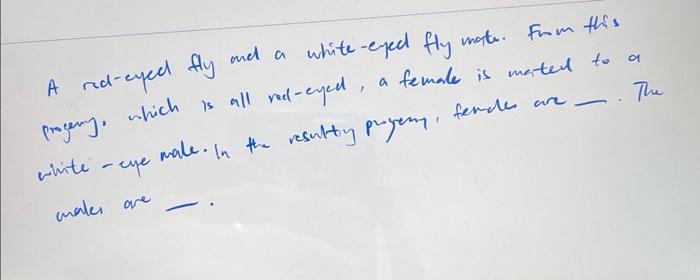 A red-eyed fly and a white-eyed fly mate. From this
progeny, which is all red-eyed, a female is mated to a
white-eye male. In the resulting progeny, females are __. The
males are __.